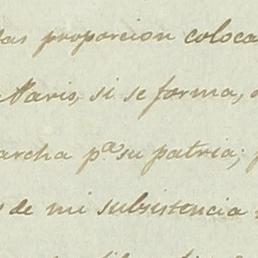 las proporcion coloca
Paris, si se forma,
archa pª su patria;
de mi subsistencia